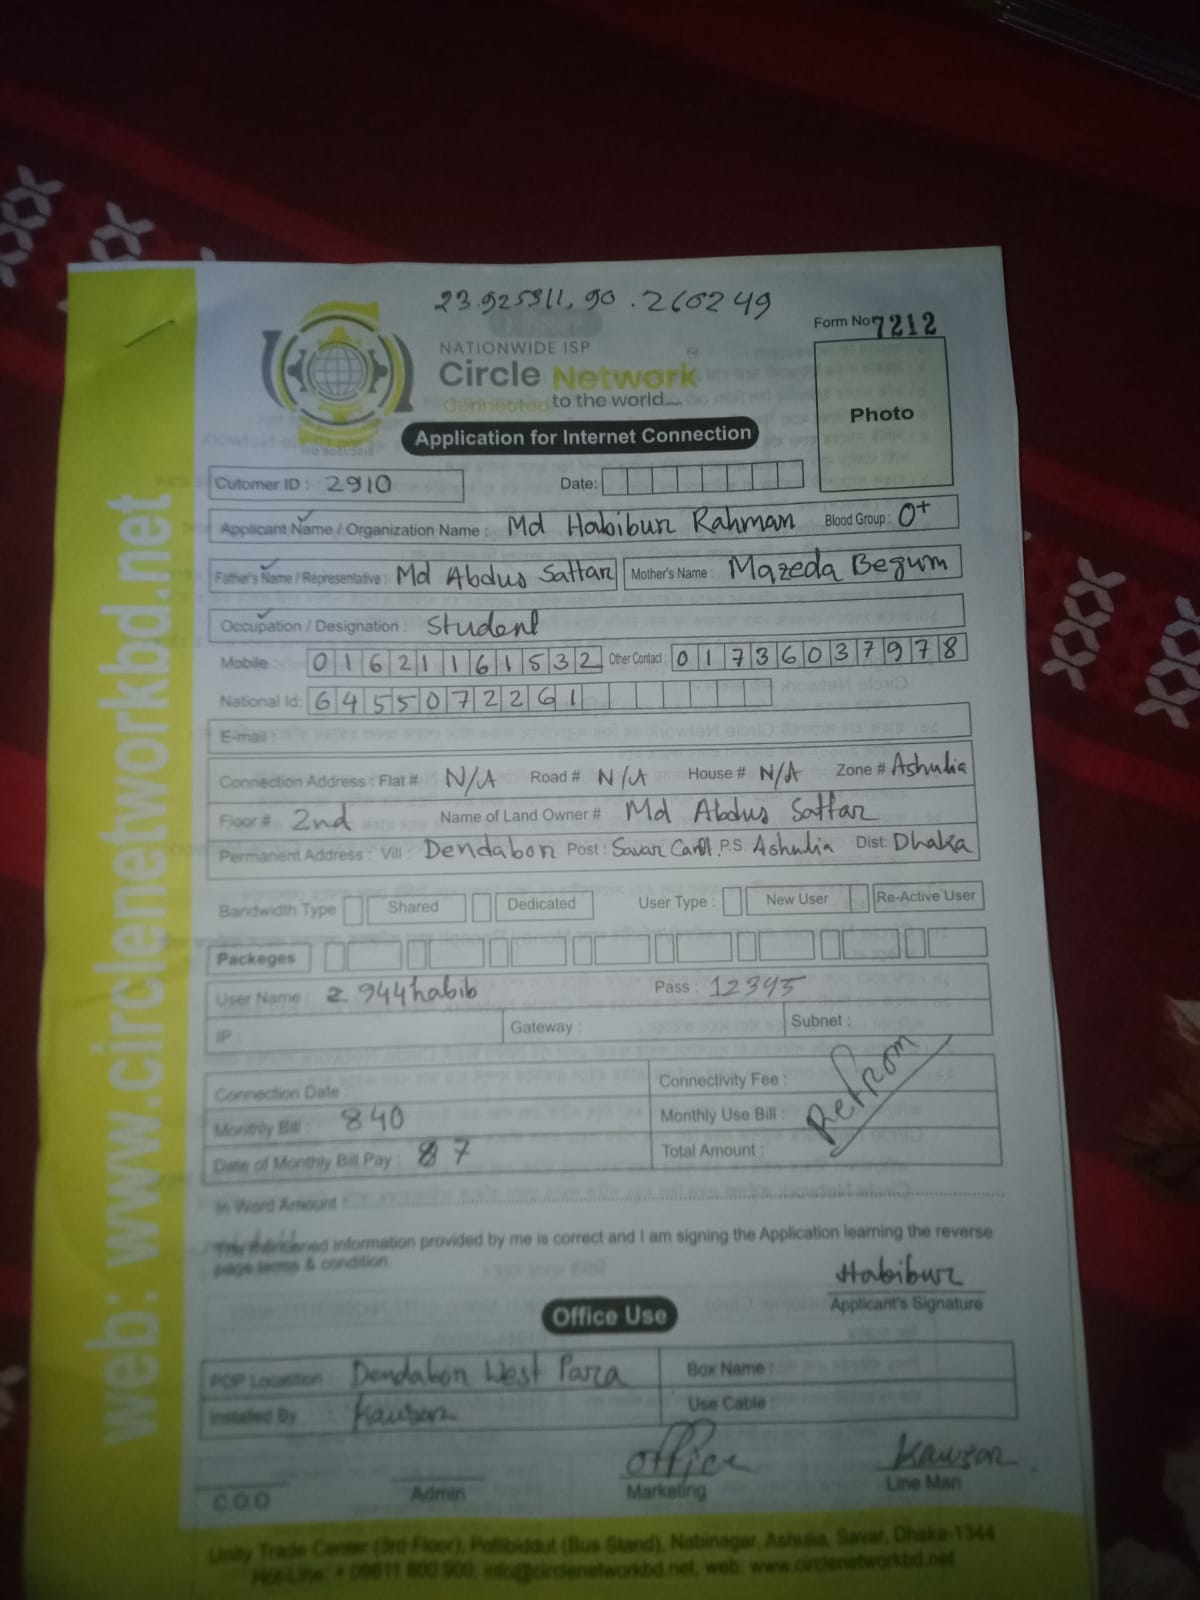 23.925911, 90.260249
Form No 7212
NATIONWIDE ISP
Circle Network
Connected to the world....
Photo
Application for Internet Connection
ISO 9001:2015
Cutomer ID : 2910 Date:
Applicant Name / Organization Name : Md Habibur Rahman Blood Group : O+
Father's Name / Representative : Md Abdus Sattar Mother's Name : Mazeda Begum
Occupation / Designation : Student
Mobile : 01621161532 Other Contact 01736037978
National Id: 6455072261
E-mail :
Connection Address : Flat # N/A Road # N/A House # N/A Zone # Ashulia
Floor # 2nd Name of Land Owner # Md Abdus Sattar
Permanent Address : Vill : Dendabon Post : Savar Cantt. P.S. Ashulia Dist: Dhaka
Bandwidth Type Shared Dedicated User Type : New User Re-Active User
Packeges
User Name : 2944habib Pass : 12345
IP : Gateway : Subnet :
Connection Date : Connectivity Fee :
Monthly Bill : 840 Monthly Use Bill :
Date of Monthly Bill Pay : 7 Total Amount :
Retrom
In Word Amount :
The mentioned information provided by me is correct and I am signing the Application learning the reverse
page terms & condition.
Habibur
Applicant's Signature
Office Use
POP Location : Dendabon West Para Box Name :
Installed By Kawsar Use Cable :
Office Kawsar
C.O.O Admin Marketing Line Man
Unity Trade Center (3rd Floor), Pollibiddut (Bus Stand), Nabinagar, Ashulia, Savar, Dhaka-1344
Hot-Line: + 09611 800 900, info@circlenetworkbd.net, web: www.circlenetworkbd.net
web: www.circlenetworkbd.net